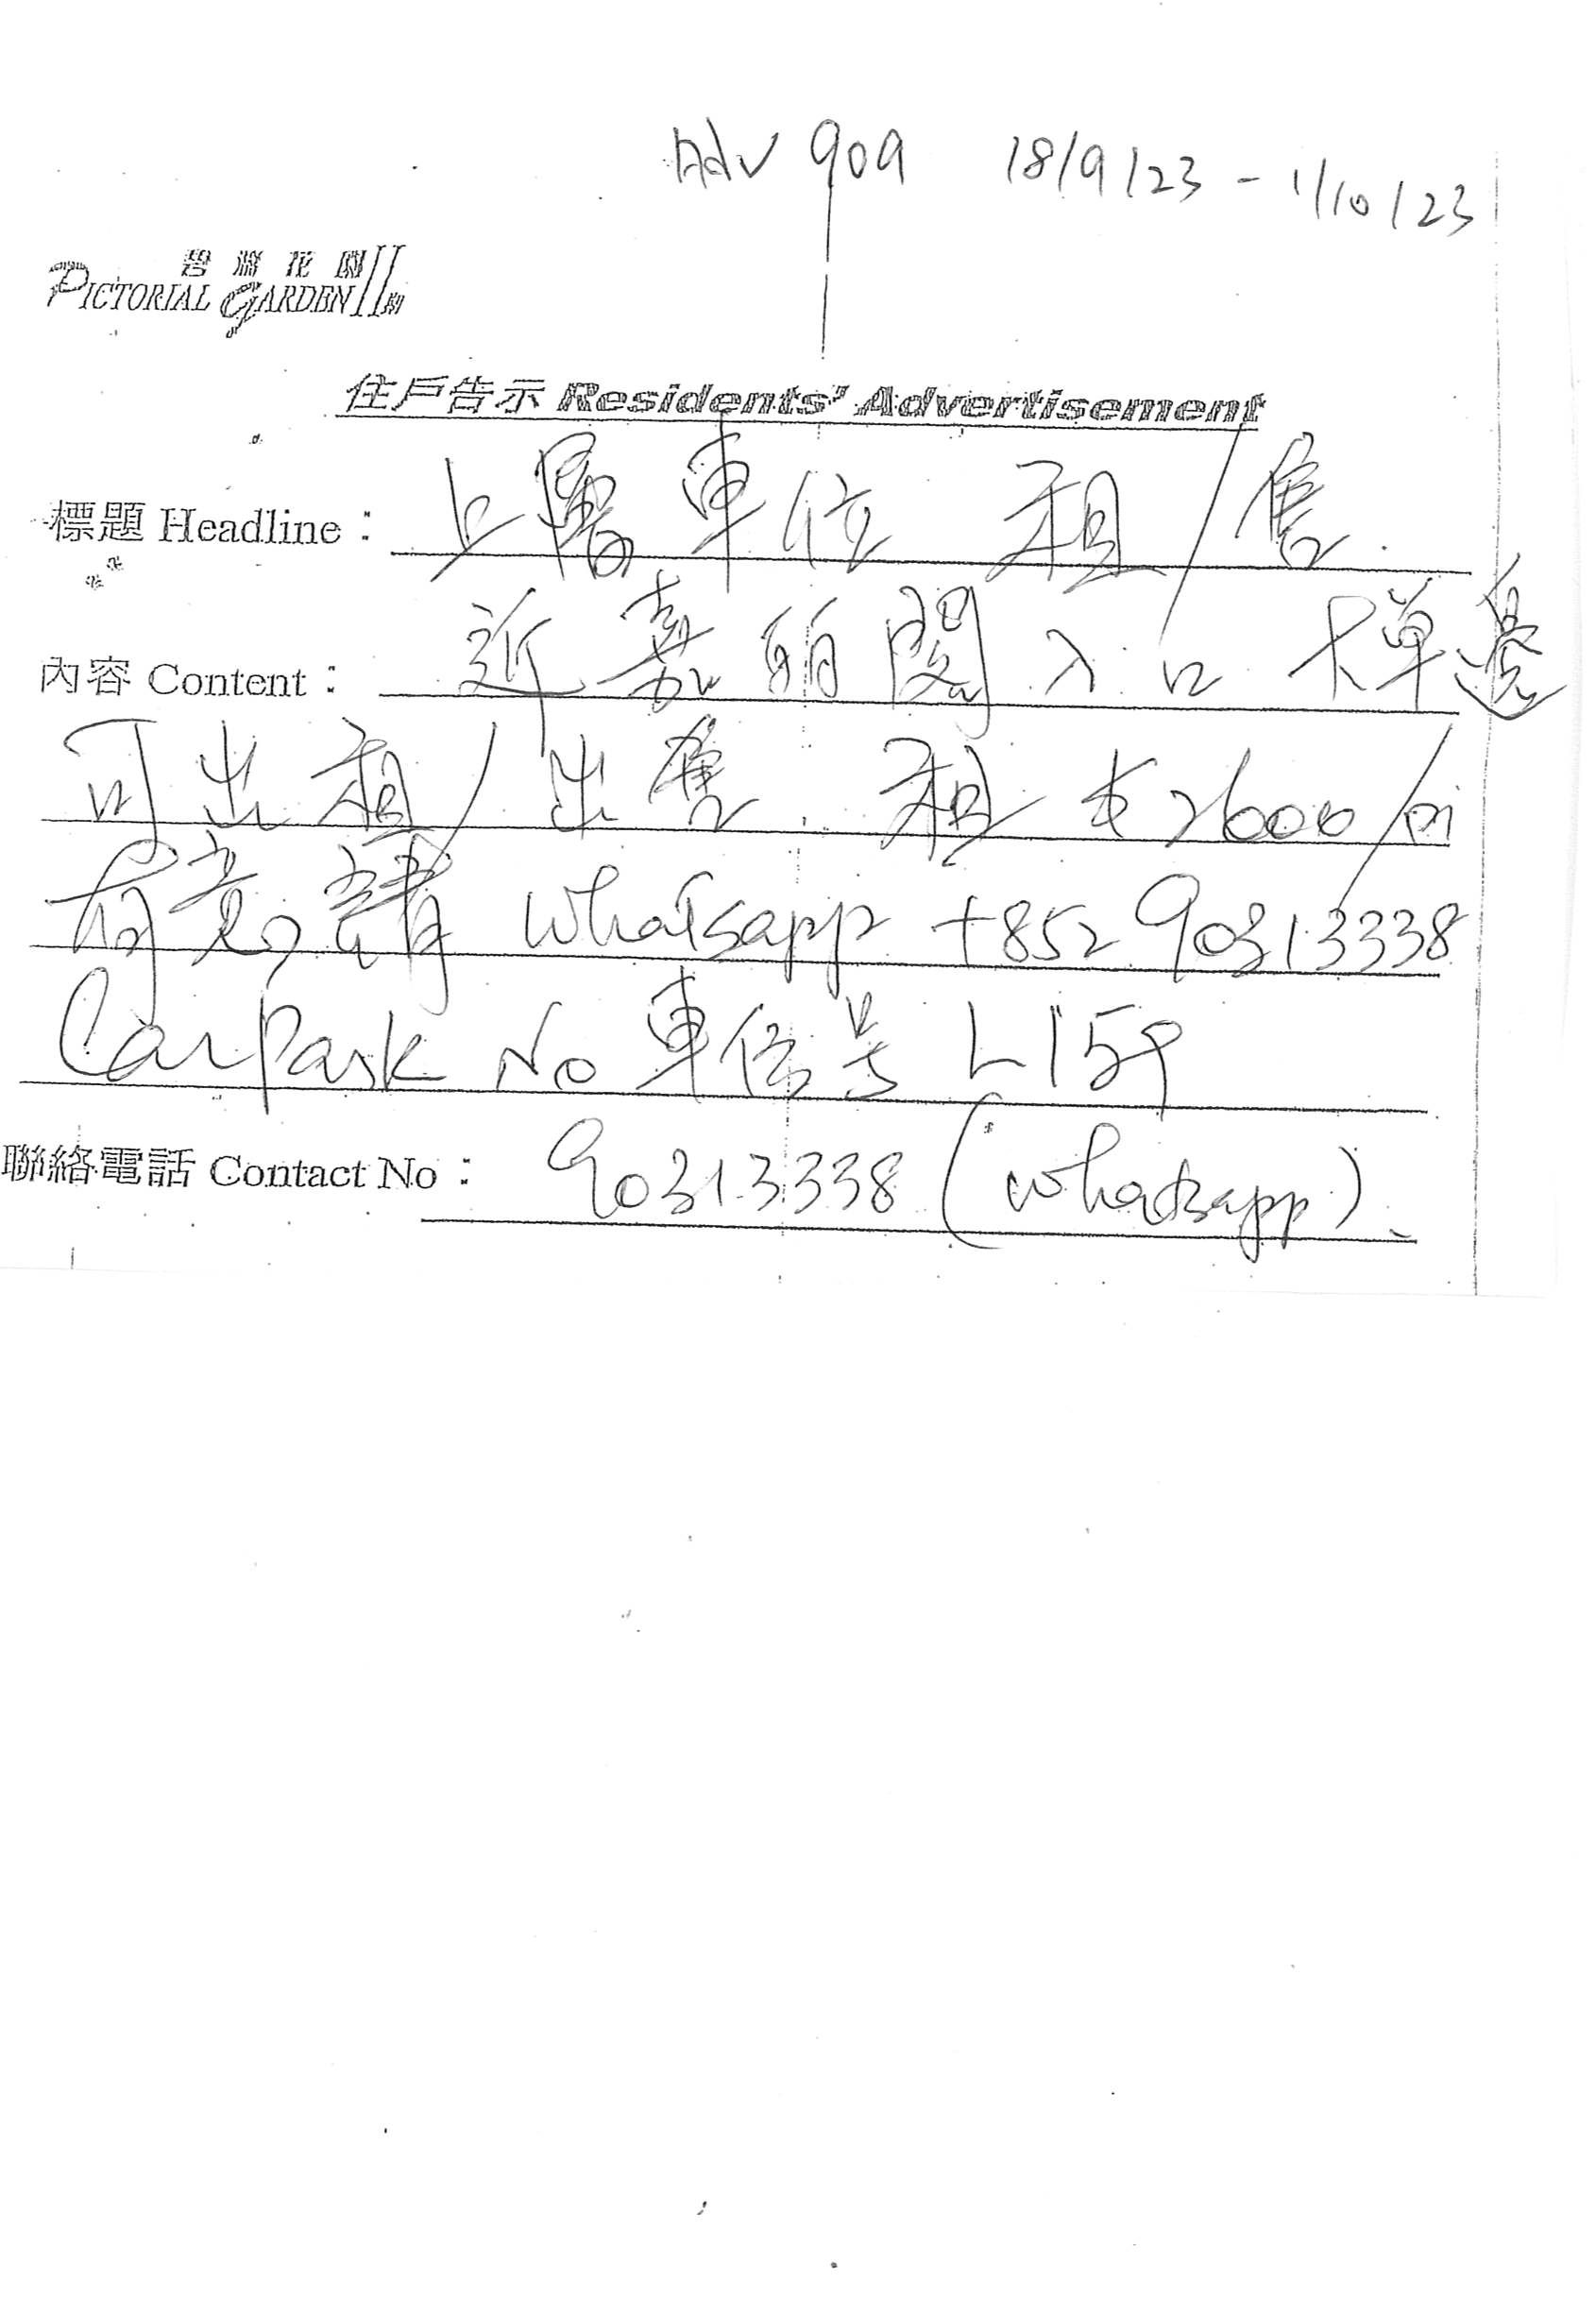 Adv 909 18/9/23 - 1/10/23
碧濤花園
PICTORIAL GARDEN II期
住戶告示 Residents' Advertisement
標題 Headline : 上層車位 租/售.
內容 Content : 近嘉明閣入口 大單邊
可出租/出售. 租 $2600/月
有意請 whatsapp +852 90313338
CarPark No 車位号 L159
聯絡電話 Contact No : 90313338 (whatsapp).